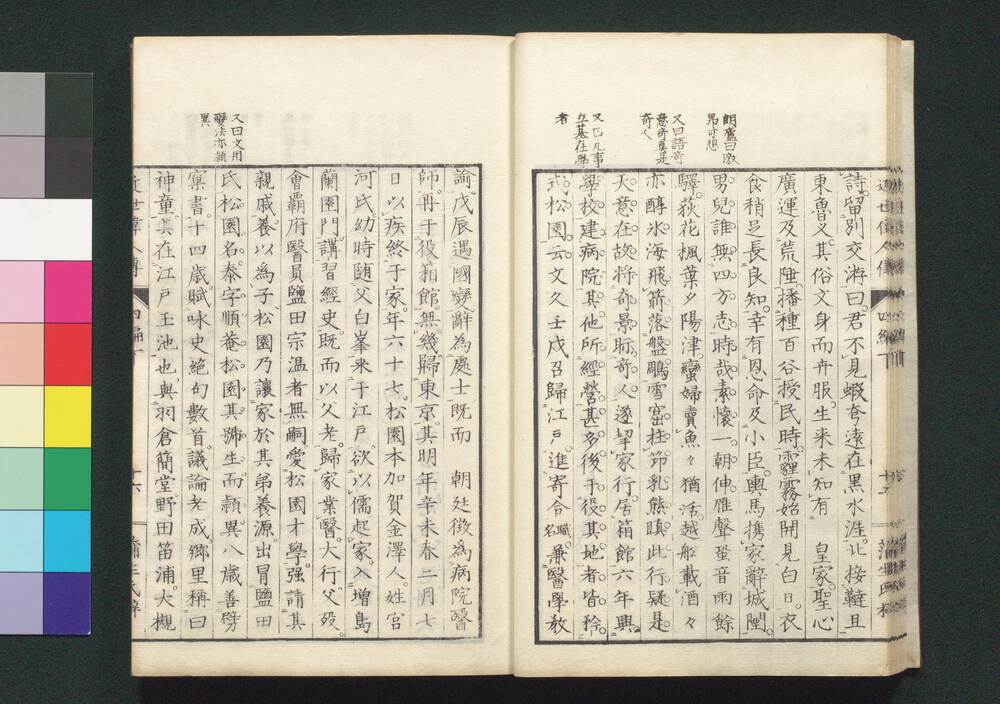 朗廬曰激
昂可想
又曰語奇
意奇真是
奇人
又曰凡事
立基在學
者
詩留別交游曰君不見蝦夸遠在黑水涯北接韃且
東魯叉其俗文身而卉服生來未知有　皇家聖心
廣運及荒陲播種百谷授民時霾霧始開見白日衣
食稍足長良知幸有恩命及小臣輿馬携家辭城闉
男兒誰無四方志時哉素懷一朝伸雁聲蛩音雨餘
驛荻花楓葉夕陽津蠻婦賣魚々猶活越船載酒々
亦醇氷海飛箭落盤鵰雪窟拄節乳熊瞋此行疑是
天意在故將奇景眎奇人遂挈家行居箱館六年興
學校建病院其他所經營甚多後于役其地者皆矜
式松園云文久壬戌召歸江戶進寄合職名兼醫學教
又曰文用
變法亦頴
異
諭戊辰遇國變辭為處士既而　朝廷徴為病院醫
師再于役箱館無幾歸東京其明年辛未春二月七
日以疾終于家年六十七松園本加賀金澤人姓宮
河氏幼時随父白峯来于江戶欲以儒起家入増島
蘭園門講習經史既而以父老歸家業醫大行父歿
會覇府醫員鹽田宗温者無嗣愛松園才學强請其
親戚養以為子松園乃讓家於其弟養源出冒鹽田
氏松園名泰字順菴松園其號生而頴異八歳善傍
窠書十四歳賦咏史絶句數首議論老成鄉里稱曰
神童其在江戶玉池也與羽倉簡堂野田笛浦大槻